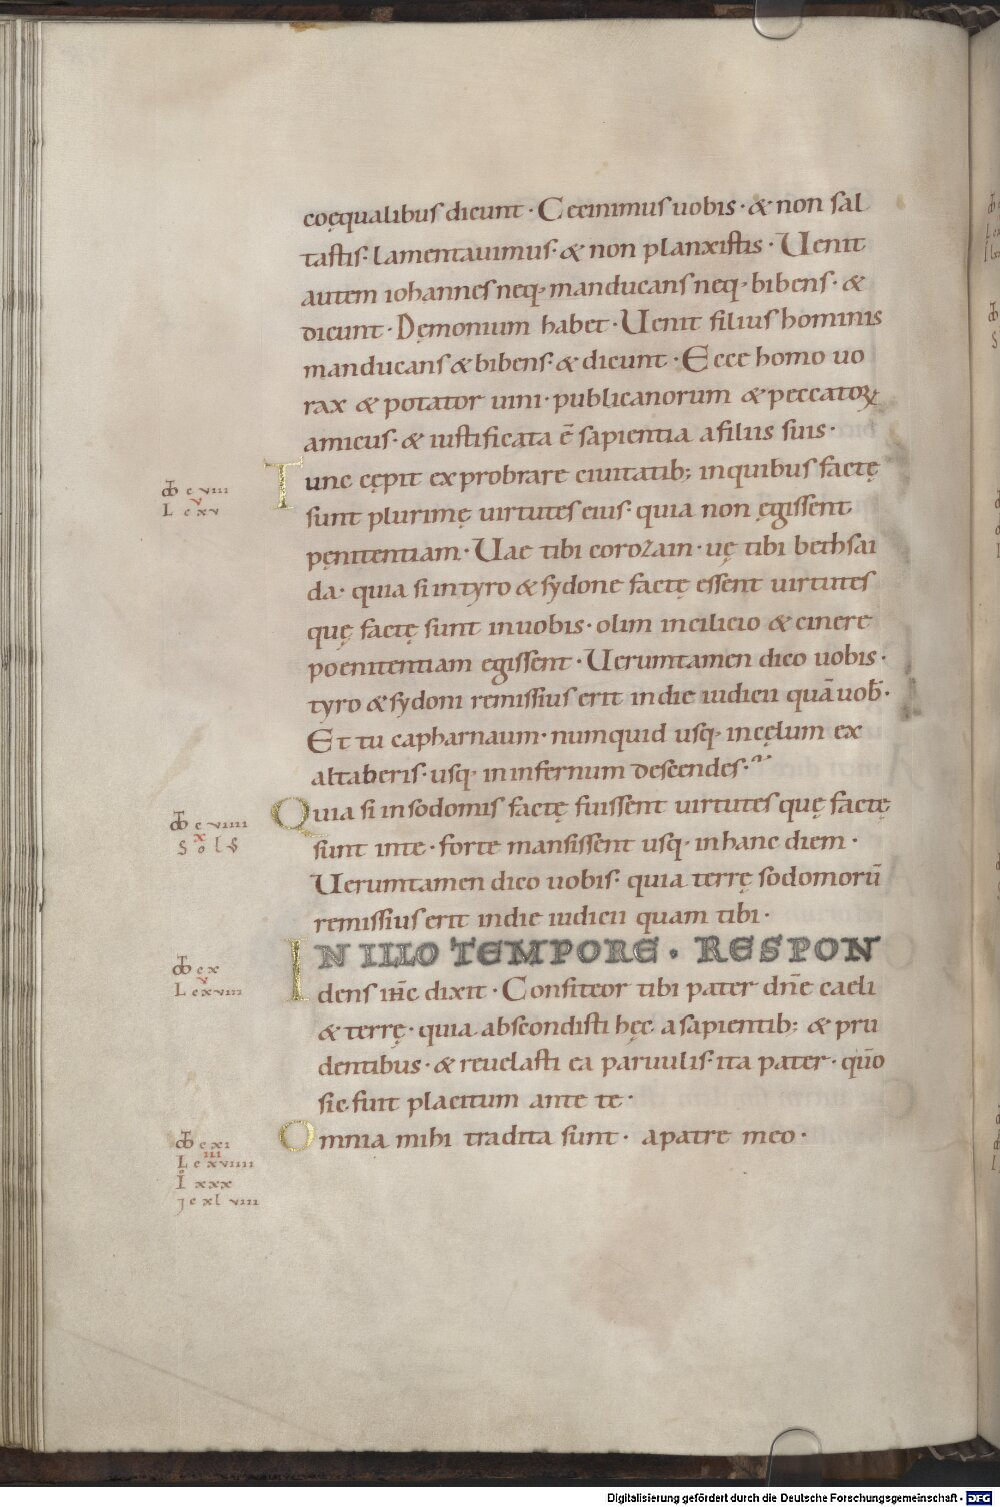 coęqualibus dicunt · Cecinimus uobis · & non sal
tastis · lamentauimus · & non planxistis · Uenit
autem iohannes neq· manducans neq· bibens · &
dicunt · Dęmonium habet · Uenit filius hominis
manducans & bibens · & dicunt · Ecce homo uo
rax & potator uini · publicanorum & peccatoꝝ
amicus · & iustificata ē sapientia a filiis suis ·
Tunc cępit exprobrare ciuitatib; in quibus factę
sunt plurimę uirtutes eius · quia non ęgissent
pęnitentiam · Uae tibi corozain · uę tibi bethsai
da · quia si in tyro & sydone factę essent uirtutes
quę factę sunt in uobis · olim in cilicio & cinere
poenitentiam egissent · Uerumtamen dico uobis ·
tyro & sydoni remissius erit in die iudicii quā uob̄ ·
Et tu capharnaum · numquid usq· in cęlum ex
altaberis · usq· in infernum descendes ·
Quia si in sodomis factę fuissent uirtutes quę factę
sunt in te · forte mansissent usq· in hanc diem ·
Uerumtamen dico uobis · quia terrę sodomorū
remissius erit in die iudicii quam tibi ·
IN ILLO TEMPORE · RESPON
dens ih̄c dixit · Confiteor tibi pater dn̄e caeli
& terrę · quia abscondisti hęc a sapientib; & pru
dentibus · & reuelasti ea paruulis · ita pater · qūo
sic fuit placitum ante te ·
Omnia mihi tradita sunt · a patre meo ·
c viii
v
L c xv
c viiii
x
S o l S
c x
v
L c xviii
c xi
iii
L c xviiii
I xxx
j c xl viii
Digitalisierung gefördert durch die Deutsche Forschungsgemeinschaft - DFG